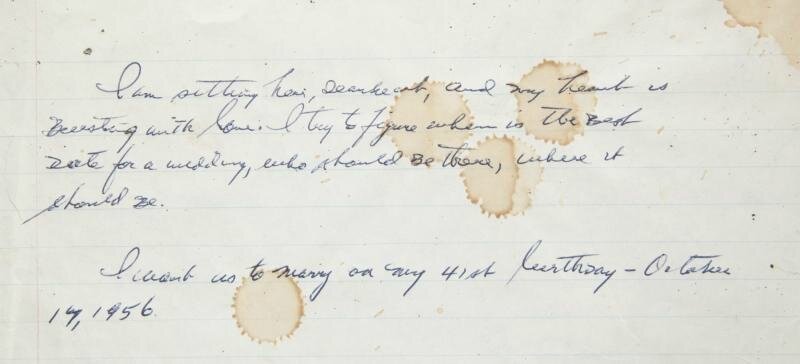 I am sitting here, dearheart, and my heart is
bursting with love. I try to figure when is the best
date for a wedding, who should be there, where it
should be.
I want us to marry on my 41st birthday - October
17, 1956.